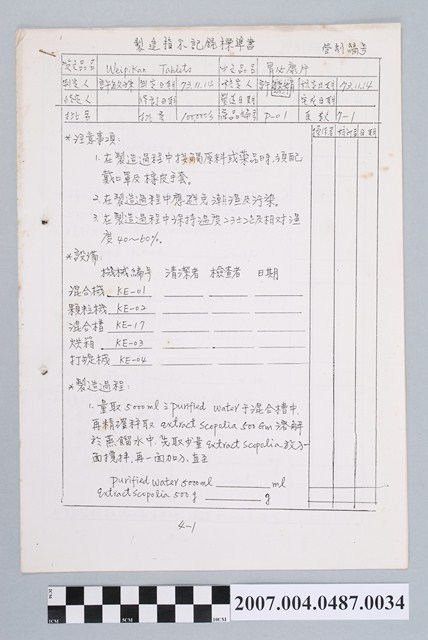 製造指示記錄標準書 管制編號
英文品名 Weipikan Tablets 中文品名 胃必康片
制定人 許敏峰 制定日期 73.11.14 核定日期 73.11.14
修定人 修訂日期 製造日期 完成日期
批號 批量 100,000's 產品編號 P-01 頁數 7-1
操作者 日期
*注意事項:
1.在製造過程中接觸原料或藥品時,須配
戴口罩及橡皮手套。
2.在製造過程中應避免潮濕及污染。
3.在製造過程中保持溫度23±2℃及相對溼
度40~60%。
*設備:
機械編號 清潔者 檢查者 日期
混合機 KE-01
顆粒機 KE-02
混合槽 KE-17
烘箱 KE-03
打錠機 KE-04
*製造過程:
1.量取5000ml之purified water于混合槽中,
再精確秤取extract scopolia 500Gm溶解
於蒸餾水中,先取少量extract scopolia
面攪拌,再一面加入,直至
purified water 5000ml ml
Extract scopolia 500g g
4-1
0CM 5CM 10CM
2007.004.0487.0034